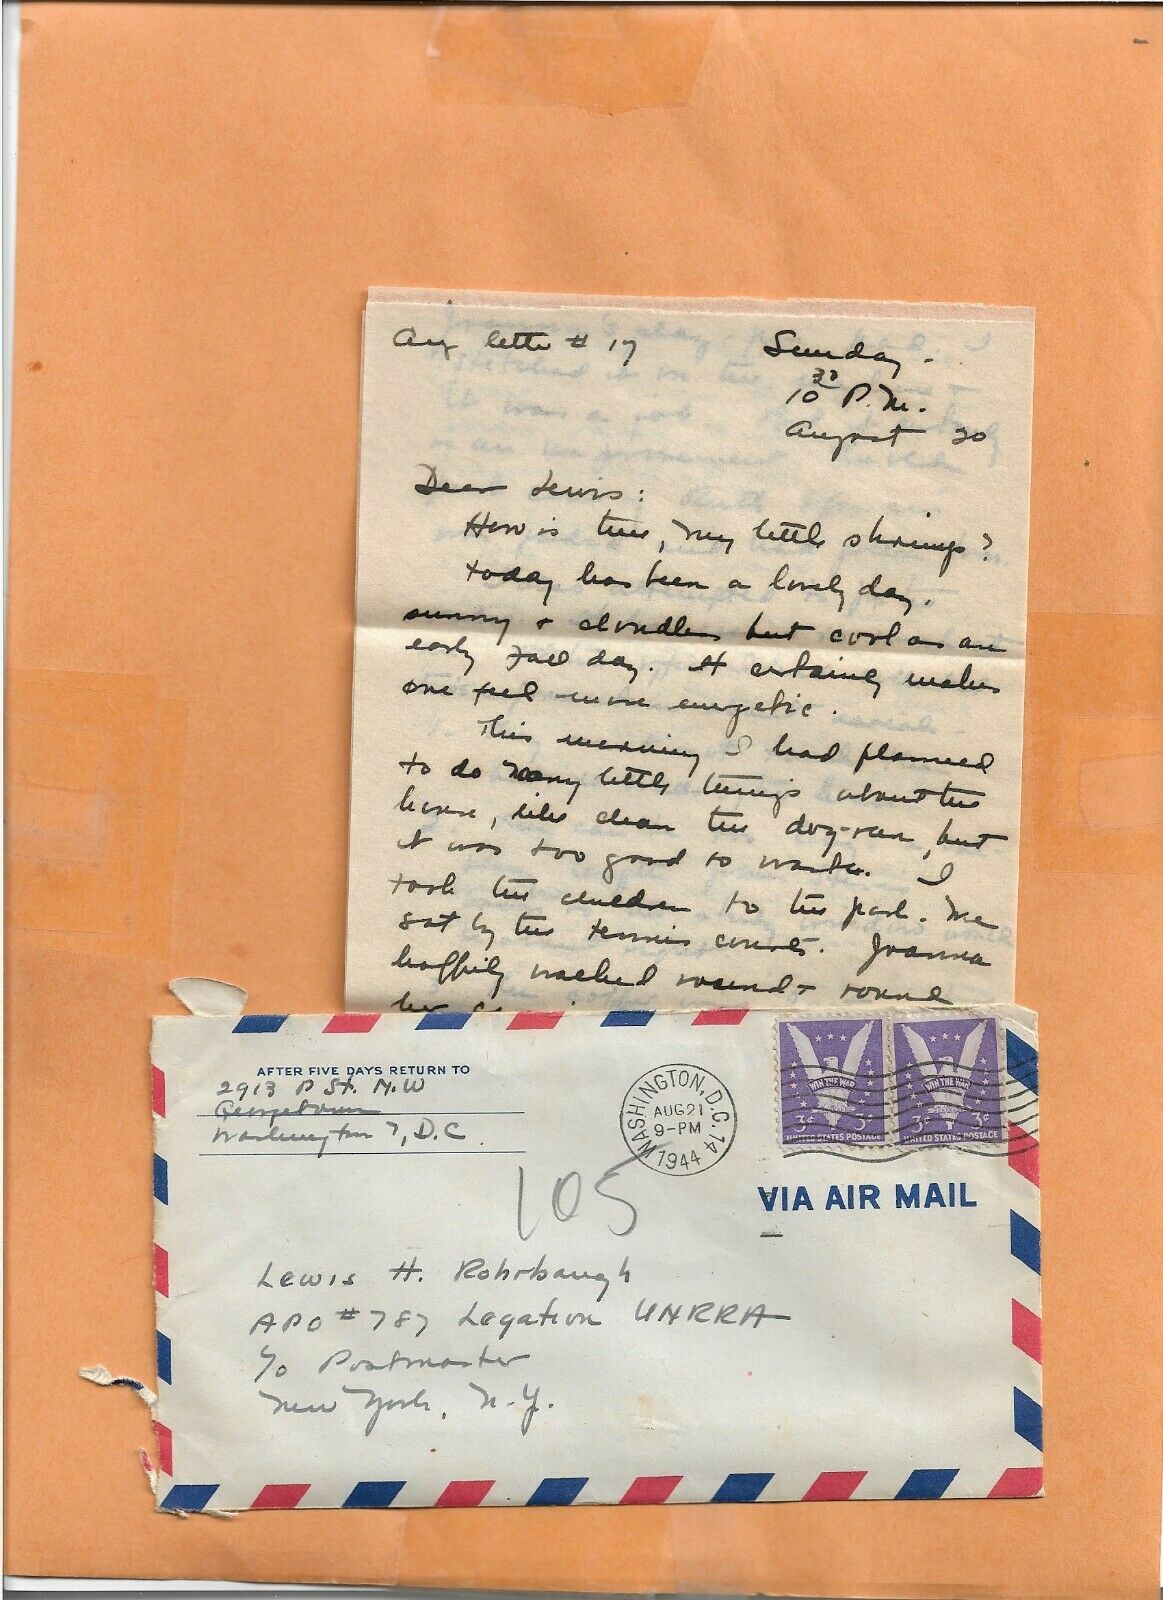 Aug letter # 17
Sunday.
10 30 P.M.
August 20
Dear Lewis:
How is the, my little shrimp?
Today has been a lovely day.
sunny & cloudless but cool as an
early fall day. It certainly makes
one feel more energetic.
This morning I had planned
to do many little things about the
house, like clean the dog-run, but
it was too good to waste. I
took the children to the park. We
sat by the tennis courts. Joanna
happily walked round & round
her
AFTER FIVE DAYS RETURN TO
2913 P St. N.W
Georgetown
Washington 7, D.C.
WASHINGTON, D.C. 14
AUG 21
9-PM
1944
WIN THE WAR
3¢ 3¢
UNITED STATES POSTAGE
WIN THE WAR
3¢ 3¢
UNITED STATES POSTAGE
VIA AIR MAIL
105
Lewis H. Rohrbaugh
APO # 787 Legation UNRRA
c/o Postmaster
New York, N.Y.